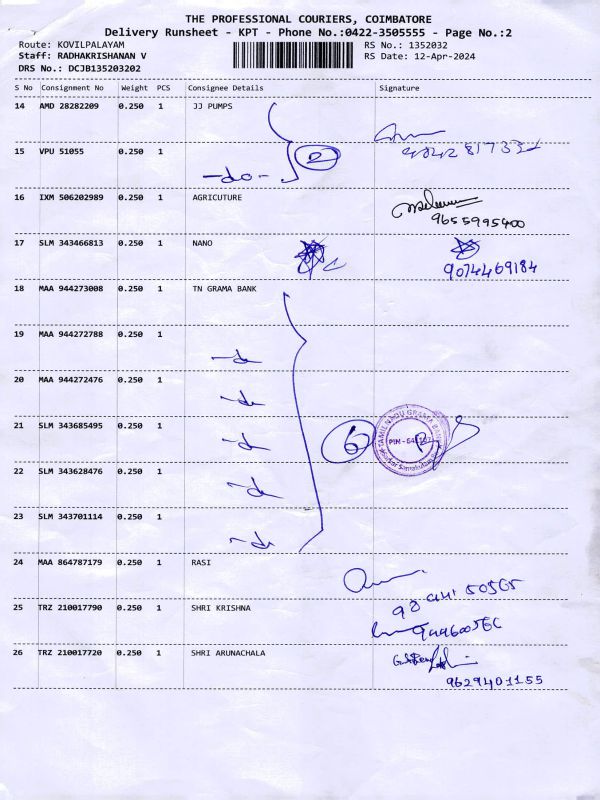 THE PROFESSIONAL COURIERS, COIMBATORE
Delivery Runsheet - KPT - Phone No.:0422-3505555 - Page No.:2
Route: KOVILPALAYAM
RS No.: 1352032
Staff: RADHAKRISHANAN V
RS Date: 12-Apr-2024
DRS No.: DCJB135203202
S No Consignment No Weight PCS Consignee Details Signature
14 AMD 28282209 0.250 1 JJ PUMPS
15 VPU 51055 0.250 1
-do- 2
16 IXM 506202989 0.250 1 AGRICUTURE
9655995400
17 SLM 343466813 0.250 1 NANO
9074469184
18 MAA 944273008 0.250 1 TN GRAMA BANK
19 MAA 944272788 0.250 1
-do
20 MAA 944272476 0.250 1
-do
21 SLM 343685495 0.250 1
-do 6 TAMIL NADU GRAMA BANK
22 SLM 343628476 0.250 1
-do
23 SLM 343701114 0.250 1
-do
24 MAA 864787179 0.250 1 RASI
25 TRZ 210017790 0.250 1 SHRI KRISHNA
26 TRZ 210017720 0.250 1 SHRI ARUNACHALA
9629401155